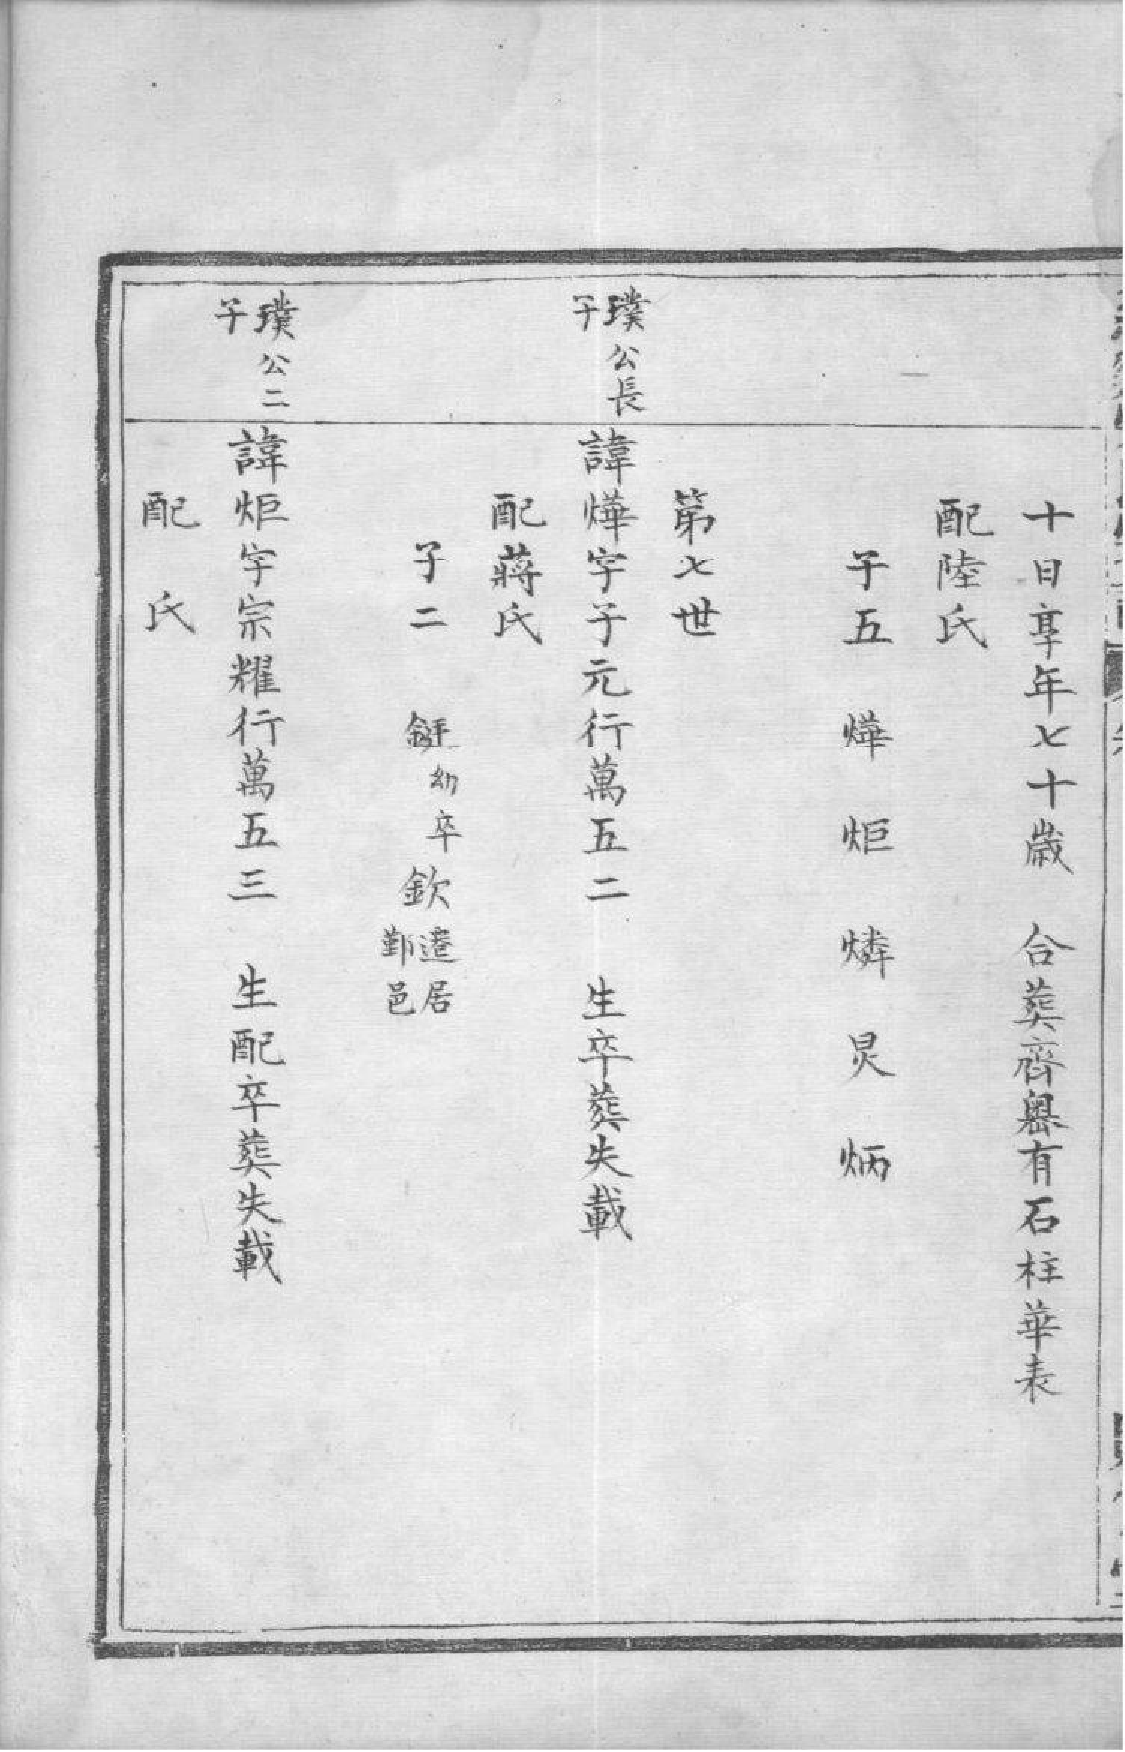 十日享年七十歲 合葬齊嶴有石柱華表
配陸氏
子五 燁 炬 燐 炅 炳
第七世
璞公長子
諱燁字子元行萬五二 生卒葬失載
配蔣氏
子二 幼卒 欽 遷居鄞邑
璞公二子
諱炬字宗耀行萬五三 生配卒葬失載
配 氏